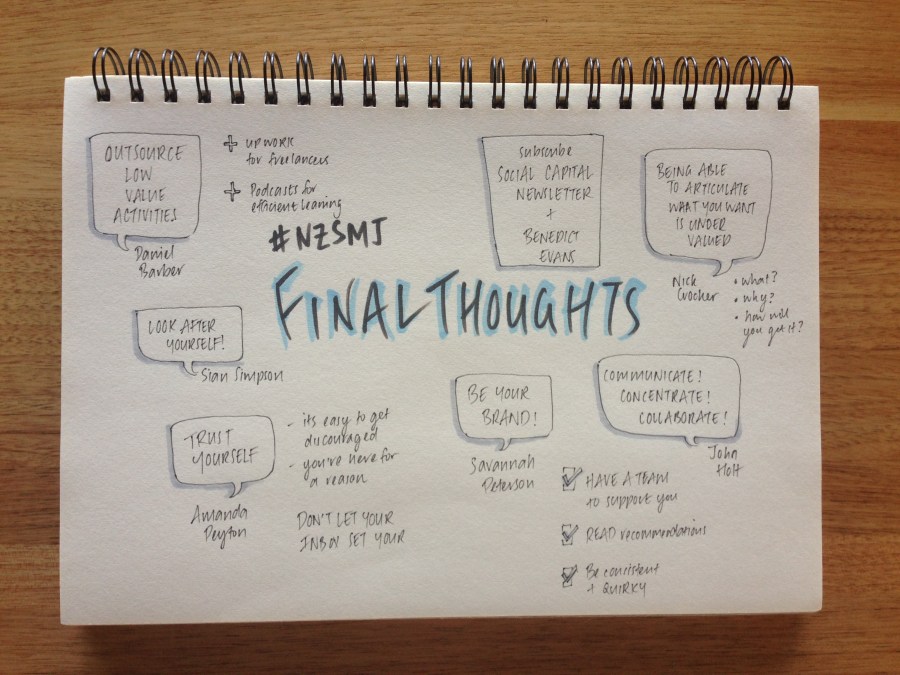 OUTSOURCE
LOW
VALUE
ACTIVITIES
Daniel
Barber
+ UPWORK
for freelancers
+ Podcasts for
efficient learning
#NZSMJ
FINAL THOUGHTS
subscribe
SOCIAL CAPITAL
NEWSLETTER
+
BENEDICT
EVANS
BEING ABLE
TO ARTICULATE
WHAT YOU WANT
IS UNDER
VALUED
Nick
Crocker
• what?
• why?
• how will
you get it?
LOOK AFTER
YOURSELF!
Sian Simpson
TRUST
YOURSELF
Amanda
Peyton
- its easy to get
discouraged
- you're here for
a reason
DON'T LET YOUR
INBOX SET YOUR
BE YOUR
BRAND!
Savannah
Peterson
COMMUNICATE!
CONCENTRATE!
COLLABORATE!
John
Holt
HAVE A TEAM
to support you
READ recommendations
Be consistent
+ QUIRKY